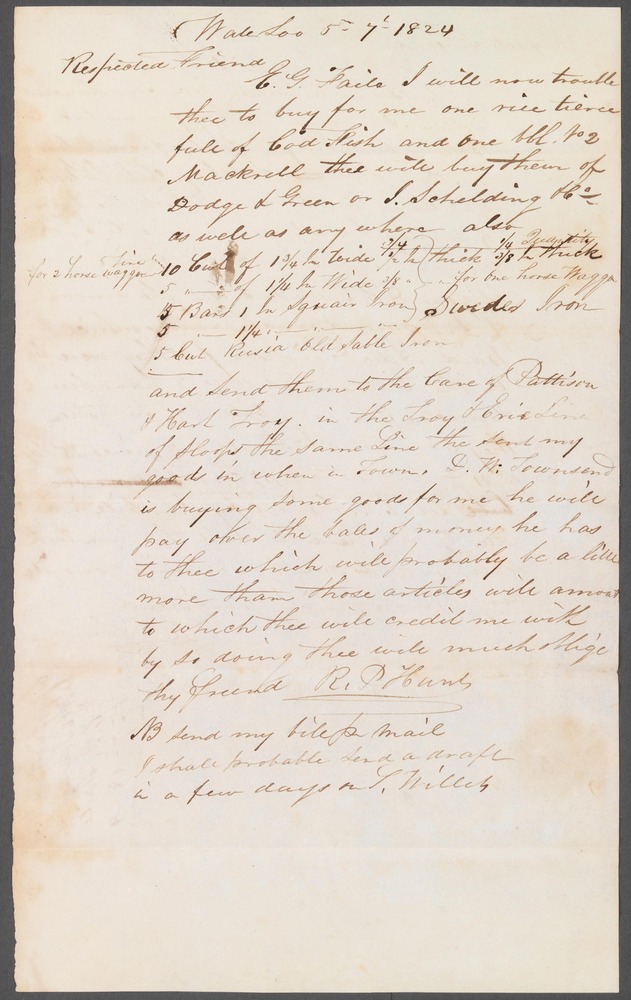 Waterloo 5- 7- 1824
Respected Friend
E. G. Faile I will now trouble
thee to buy for me one rice tierce
full of Cod Fish and one bbl. No 2
Mackrell thee will buy them of
Dodge & Green or S. Schelding & Co
as well as any where also
10 Cwt of 1 3/4 In wide 3/4 thick 1/4 3/8 In thick
for 2 horse waggon
5 " of 1 1/4 In Wide 3/8 " " for one horse Waggon
15 Bars 1 In Squair Iron Swedes Iron
5 " 1 1/4 " " "
5 Cwt Rusia Old Sable Iron
and send them to the Care of Pattison
& Hart Troy. in the Troy & Erie Line
of sloops the same Line the sent my
goods in when in Town, D. W. Townsend
is buying some goods for me he will
pay over the bales of money he has
to thee which will probably be a little
more than those articles will amount
to which thee will credit me with
by so doing thee will much oblige
thy friend R. P Hunt
NB send my bile pr mail
I shall probable send a draft
in a few days on S. Willets